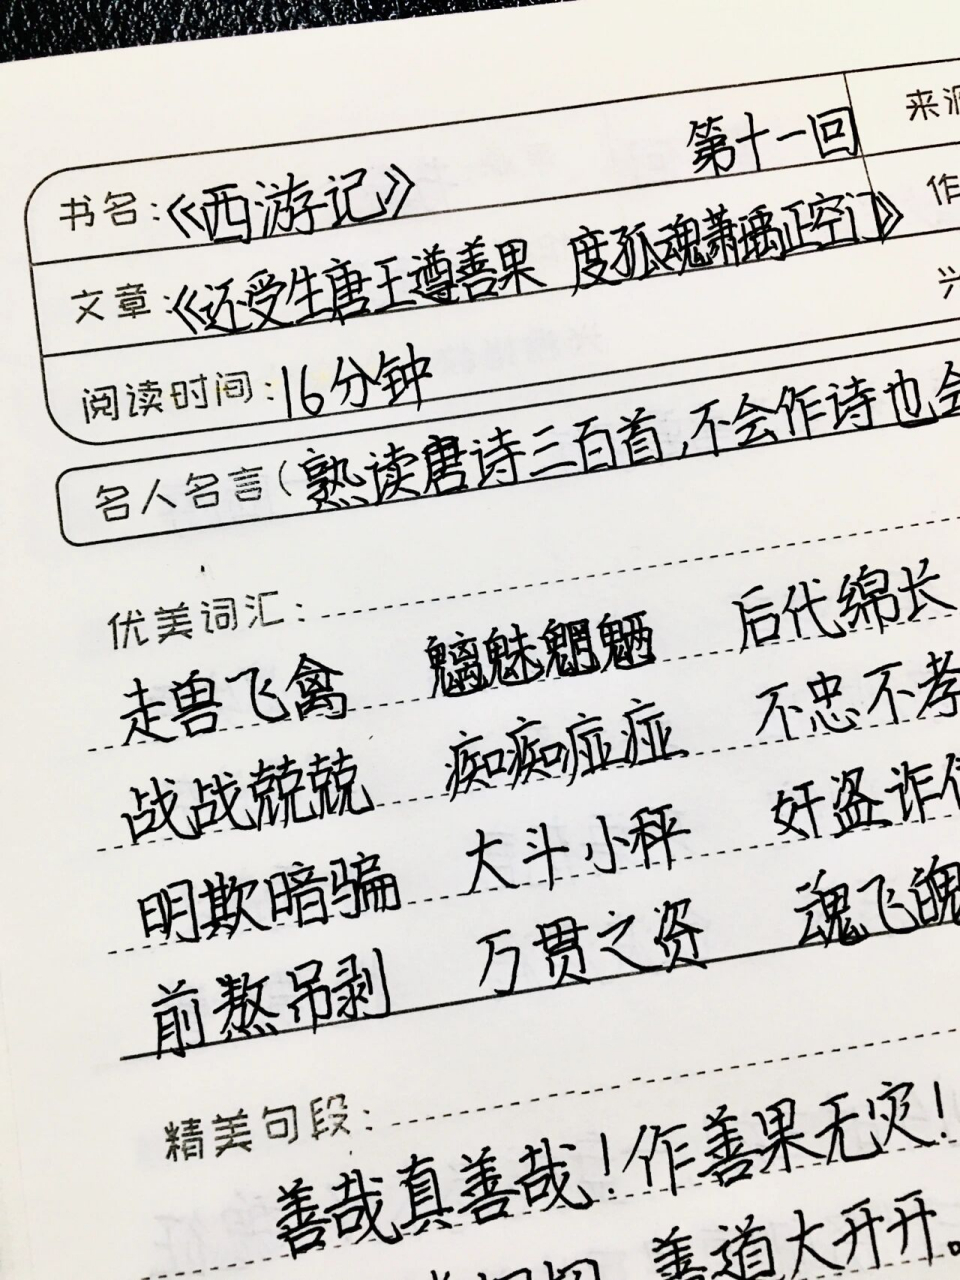 第十一回
来源
书名：《西游记》
作
文章：《还受生唐王遵善果 度孤魂萧瑀正空门》
兴
阅读时间：16分钟
名人名言（熟读唐诗三百首，不会作诗也会
优美词汇：
走兽飞禽 魑魅魍魉 后代绵长
战战兢兢 痴痴痖痖 不忠不孝
明欺暗骗 大斗小秤 奸盗诈
前熬吊剥 万贯之资 魂飞魄
精美句段：
善哉真善哉！作善果无灾！
善道大开开。